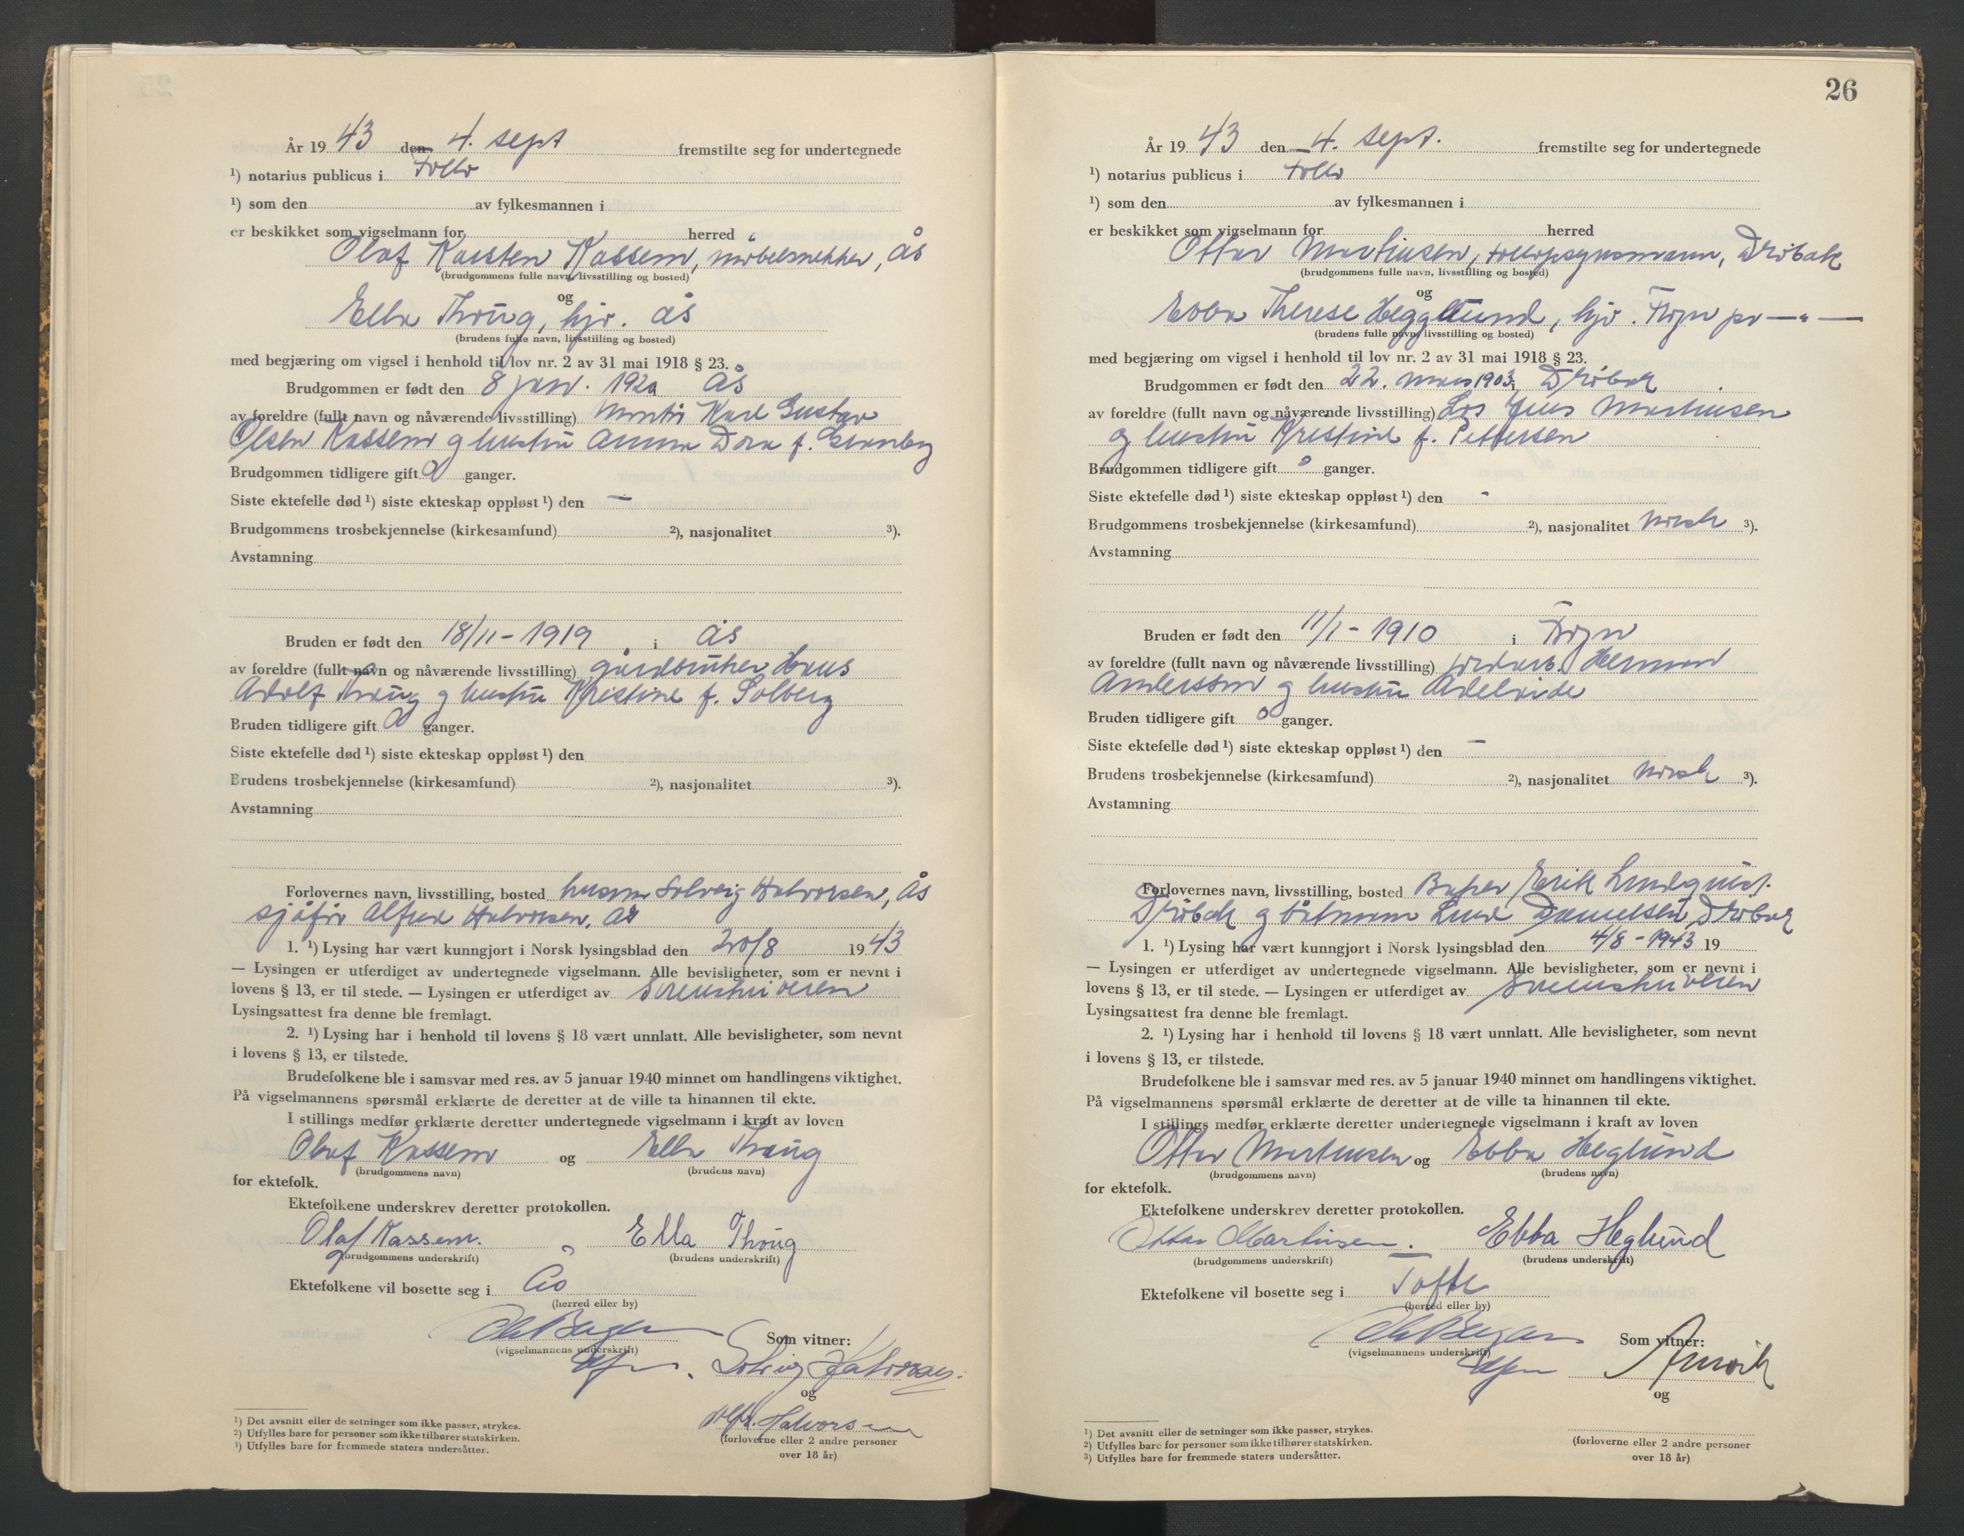 År 1943 den 4. sept fremstilte seg for undertegnede
¹) notarius publicus i Follo
¹) som den av fylkesmannen i
er beskikket som vigselmann for herred
Olaf Karsten Kassem, møbelsnekker, Ås
(brudgommens fulle navn, livsstilling og bosted)
og
Ella Thrug, hjv. Ås
(brudens fulle navn, livsstilling og bosted)
med begjæring om vigsel i henhold til lov nr. 2 av 31 mai 1918 § 23.
Brudgommen er født den 8 jan. 192 Ås
av foreldre (fullt navn og nåværende livsstilling) Karl Gustav
Olsen Kassem og hustru Anna Dora f. Granberg
Brudgommen tidligere gift 0 ganger.
Siste ektefelle død ¹) siste ekteskap oppløst ¹) den —
Brudgommens trosbekjennelse (kirkesamfund) ²), nasjonalitet ³).
Avstamning
Bruden er født den 18/11 - 1919 i Ås
av foreldre (fullt navn og nåværende livsstilling) gårdbruker Hans
Adolf Thrug og hustru Kristine f. Solberg
Bruden tidligere gift 0 ganger.
Siste ektefelle død ¹) siste ekteskap oppløst ¹) den
Brudens trosbekjennelse (kirkesamfund) ²), nasjonalitet ³).
Avstamning
Forlovernes navn, livsstilling, bosted husm Solveig Halvorsen, Ås
sjåfør Alfred Halvorsen, Ås
1. ¹) Lysing har vært kunngjort i Norsk lysingsblad den 20/8 1943
— Lysingen er utferdiget av undertegnede vigselmann. Alle bevisligheter, som er nevnt i
lovens § 13, er til stede. — Lysingen er utferdiget av Sorenskriveren
Lysingsattest fra denne ble fremlagt.
2. ¹) Lysing har i henhold til lovens § 18 vært unnlatt. Alle bevisligheter, som nevnt
i lovens § 13, er tilstede.
Brudefolkene ble i samsvar med res. av 5 januar 1940 minnet om handlingens viktighet.
På vigselmannens spørsmål erklærte de deretter at de ville ta hinannen til ekte.
I stillings medfør erklærte deretter undertegnede vigselmann i kraft av loven
Olaf Kassem og Ella Thrug
(brudgommens navn) (brudens navn)
for ektefolk.
Ektefolkene underskrev deretter protokollen.
Olaf Kassem. Ella Thrug
(brudgommens underskrift) (brudens underskrift)
Ektefolkene vil bosette seg i Ås
(herred eller by)
Som vitner:
(vigselmannens underskrift)
Solveig Halvorsen.
og
Alfr. Halvorsen
(forloverne eller 2 andre personer
over 18 år)
¹) Det avsnitt eller de setninger som ikke passer, strykes.
²) Utfylles bare for personer som ikke tilhører statskirken.
³) Utfylles bare for fremmede staters undersåtter.
26
År 1943 den 4. sept. fremstilte seg for undertegnede
¹) notarius publicus i Follo
¹) som den av fylkesmannen i
er beskikket som vigselmann for herred
Ottar Martinsen, Drøbak
(brudgommens fulle navn, livsstilling og bosted)
og
Ebba Therese Hegglund, hjv. Frogn pr — " —
(brudens fulle navn, livsstilling og bosted)
med begjæring om vigsel i henhold til lov nr. 2 av 31 mai 1918 § 23.
Brudgommen er født den 22. mars 1903 i Drøbak
av foreldre (fullt navn og nåværende livsstilling) Los Jens Martinsen
og hustru Kristine f. Pettersen
Brudgommen tidligere gift 0 ganger.
Siste ektefelle død ¹) siste ekteskap oppløst ¹) den -
Brudgommens trosbekjennelse (kirkesamfund) ²), nasjonalitet norsk ³).
Avstamning
Bruden er født den 11/1 - 1910 i Frogn
av foreldre (fullt navn og nåværende livsstilling) jordarb. Herman
Anderssen og hustru Adelaide
Bruden tidligere gift 0 ganger.
Siste ektefelle død ¹) siste ekteskap oppløst ¹) den —
Brudens trosbekjennelse (kirkesamfund) ²), nasjonalitet norsk ³).
Avstamning
Forlovernes navn, livsstilling, bosted Baker Erik Lindquist.
Drøbak og båtmann Danielsen, Drøbak
1. ¹) Lysing har vært kunngjort i Norsk lysingsblad den 4/8 - 1943 19
— Lysingen er utferdiget av undertegnede vigselmann. Alle bevisligheter, som er nevnt i
lovens § 13, er til stede. — Lysingen er utferdiget av Sorenskriveren
Lysingsattest fra denne ble fremlagt.
2. ¹) Lysing har i henhold til lovens § 18 vært unnlatt. Alle bevisligheter, som nevnt
i lovens § 13, er tilstede.
Brudefolkene ble i samsvar med res. av 5 januar 1940 minnet om handlingens viktighet.
På vigselmannens spørsmål erklærte de deretter at de ville ta hinannen til ekte.
I stillings medfør erklærte deretter undertegnede vigselmann i kraft av loven
Ottar Martinsen og Ebba Heglund
(brudgommens navn) (brudens navn)
for ektefolk.
Ektefolkene underskrev deretter protokollen.
Ottar Martinsen. Ebba Heglund
(brudgommens underskrift) (brudens underskrift)
Ektefolkene vil bosette seg i Tofte
(herred eller by)
Som vitner:
(vigselmannens underskrift)
og
(forloverne eller 2 andre personer
over 18 år)
¹) Det avsnitt eller de setninger som ikke passer, strykes.
²) Utfylles bare for personer som ikke tilhører statskirken.
³) Utfylles bare for fremmede staters undersåtter.